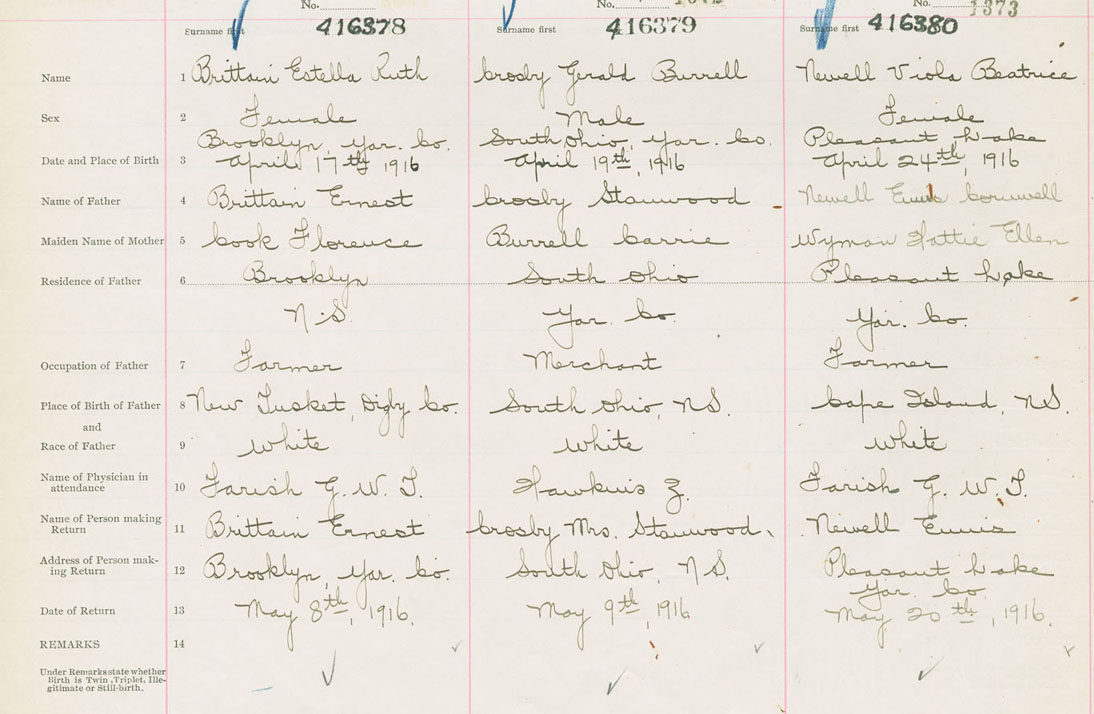 No. No. No. 1373
Surname first 416378 Surname first 416379 Surname first 416380
Name 1 Brittain Estella Ruth Crosby Gerald Burrell Newell Viola Beatrice
Sex 2 Female Male Female
Brooklyn, Yar. Co. South Ohio, Yar. Co. Pleasant Lake
Date and Place of Birth 3 April 17th 1916 April 19th, 1916 April 24th, 1916
Name of Father 4 Brittain Ernest Crosby Stanwood Newell Ennis
Maiden Name of Mother 5 Cook Florence Burrell Carrie Wyman Hattie Ellen
Residence of Father 6 Brooklyn South Ohio Pleasant Lake
N.S. Yar. Co. Yar. Co.
Occupation of Father 7 Farmer Merchant Farmer
Place of Birth of Father 8 New Tusket, Digby Co. South Ohio, N.S. Cape Island, N.S.
and
Race of Father 9 White White White
Name of Physician in
attendance 10 Farish G. W. T. Hawkins Z. Farish G. W. T.
Name of Person making
Return 11 Brittain Ernest Crosby Mrs. Stanwood. Newell Ennis
Address of Person mak-
ing Return 12 Brooklyn, Yar. Co. South Ohio, N.S. Pleasant Lake
Yar. Co.
Date of Return 13 May 8th, 1916. May 9th, 1916 May 20th, 1916.
REMARKS 14
Under Remarks state whether
Birth is Twin, Triplet, Ille-
gitimate or Still-birth.